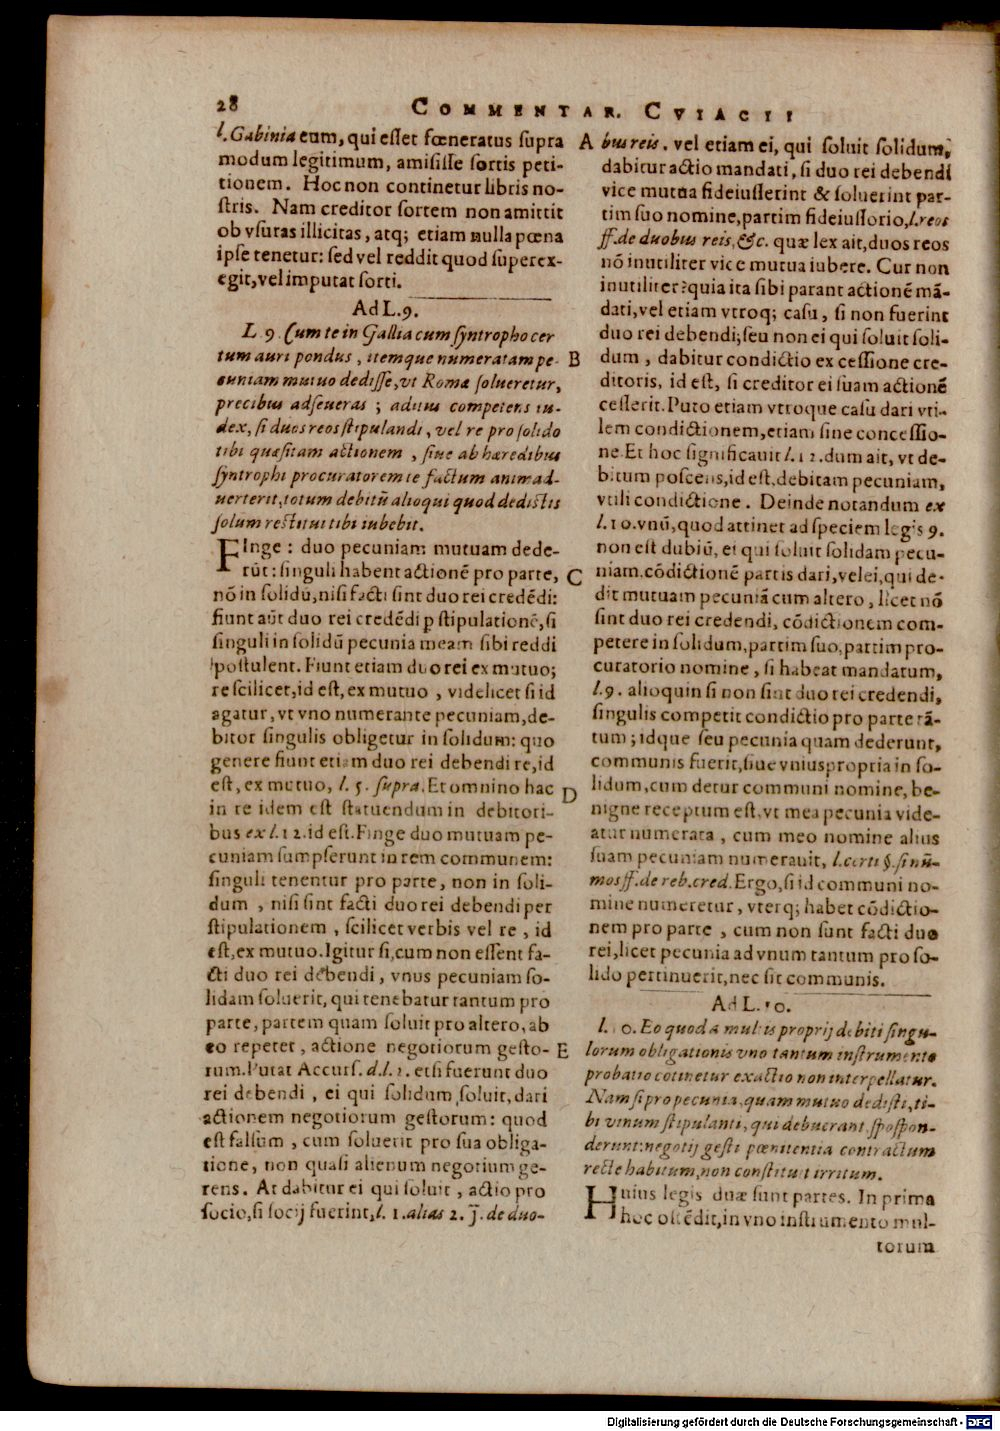 28
COMMENTAR. CVIACII
l. Gabinia eum, qui esset fœneratus supra
modum legitimum, amisisse sortis peti-
tionem. Hoc non continetur libris no-
stris. Nam creditor sortem non amittit
ob vsuras illicitas, atq; etiam nulla pœna
ipse tenetur: sed vel reddit quod superex-
egit, vel imputat sorti.
Ad L. 9.
L. 9. Cum te in Gallia cum syntropho cer
tum auri pondus, itemque numeratam pe-
cuniam mutuo dedisse, vt Romæ solueretur,
precibus adseueras; aditus competens iu-
dex, si duos reos stipulandi, vel re pro solido
tibi quæsitam actionem, siue ab hæredibus
syntrophi procuratorem te factum animad-
uerterit, totum debitū alioqui quod dedistis
solum restitui tibi iubebit.
FInge: duo pecuniam mutuam dede-
rūt: singuli habent actionē pro parte,
nō in solidū, nisi facti sint duo rei credēdi:
fiunt aūt duo rei credēdi p stipulationē, si
singuli in solidū pecunia meam sibi reddi
postulent. Fiunt etiam duo rei ex mutuo;
re scilicet, id est, ex mutuo, videlicet si id
agatur, vt vno numerante pecuniam, de-
bitor singulis obligetur in solidum: quo
genere fiunt etiam duo rei debendi re, id
est, ex mutuo, l. 5. supra. Et omnino hac
in re idem est statuendum in debitori-
bus ex l. 12. id est. Finge duo mutuam pe-
cuniam sumpserunt in rem communem:
singuli tenentur pro parte, non in soli-
dum, nisi sint facti duo rei debendi per
stipulationem, scilicet verbis vel re, id
est, ex mutuo. Igitur si, cum non essent fa-
cti duo rei debendi, vnus pecuniam so-
lidam soluerit, qui tenebatur tantum pro
parte, partem quam soluit pro altero, ab
eo repetet, actione negotiorum gesto-
rum. Putat Accurs. d. l. 2. etsi fuerunt duo
rei debendi, ei qui solidum soluit, dari
actionem negotiorum gestorum: quod
est falsum, cum soluerit pro sua obliga-
tione, non quasi alienum negotium ge-
rens. At dabitur ei qui soluit, actio pro
socio, si socij fuerint, l. 1. alias 2. J. de duo-
A
B
C
D
E
bus reis. vel etiam ei, qui soluit solidum,
dabitur actio mandati, si duo rei debendi
vice mutua fideiusserint & soluerint par-
tim suo nomine, partim fideiussorio, l. reos
ff. de duobus reis, &c. quæ lex ait, duos reos
nō inutiliter vice mutua iubere. Cur non
inutiliter? quia ita sibi parant actionē mā-
dati, vel etiam vtroq; casu, si non fuerint
duo rei debendi; seu non ei qui soluit soli-
dum, dabitur condictio ex cessione cre-
ditoris, id est, si creditor ei suam actionē
cesserit. Puto etiam vtroque casu dari vti-
lem condictionem, etiam sine concessio-
ne. Et hoc significauit l. 12. dum ait, vt de-
bitum poscens, id est, debitam pecuniam,
vtili condictione. Deinde notandum ex
l. 10. vnū, quod attinet ad speciem legis 9.
non est dubiū, ei qui soluit solidam pecu-
niam, cōdictionē partis dari, vel ei, qui de-
dit mutuam pecuniā cum altero, licet nō
sint duo rei credendi, cōdictionem com-
petere in solidum, partim suo, partim pro-
curatorio nomine, si habeat mandatum,
l. 9. alioquin si non sint duo rei credendi,
singulis competit condictio pro parte tā-
tum; idque seu pecunia quam dederunt,
communis fuerit, siue vnius propria in so-
lidum, cum detur communi nomine, be-
nigne receptum est, vt mea pecunia vide-
atur numerata, cum meo nomine alius
suam pecuniam numerauit, l. certi §. si nū-
mos ff. de reb. cred. Ergo, si id communi no-
mine numeretur, vterq; habet cōdictio-
nem pro parte, cum non sunt facti duo
rei, licet pecunia ad vnum tantum pro so-
lido pertinuerit, nec sit communis.
Ad L. 10.
l. 10. Eo quod a multis proprij debiti singu-
lorum obligationis vno tantum instrumento
probatio cōtinetur exactio non interpellatur.
Nam si pro pecunia, quam mutuo dedisti, ti-
bi vinum stipulanti, qui debuerant, spopon-
derunt: negotij gesti pœnitentia contractum
recte habitum, non constituit irritum.
HVius legis duæ sunt partes. In prima
hoc ostēdit, in vno instrumento mul-
torum
Digitalisierung gefördert durch die Deutsche Forschungsgemeinschaft - DFG